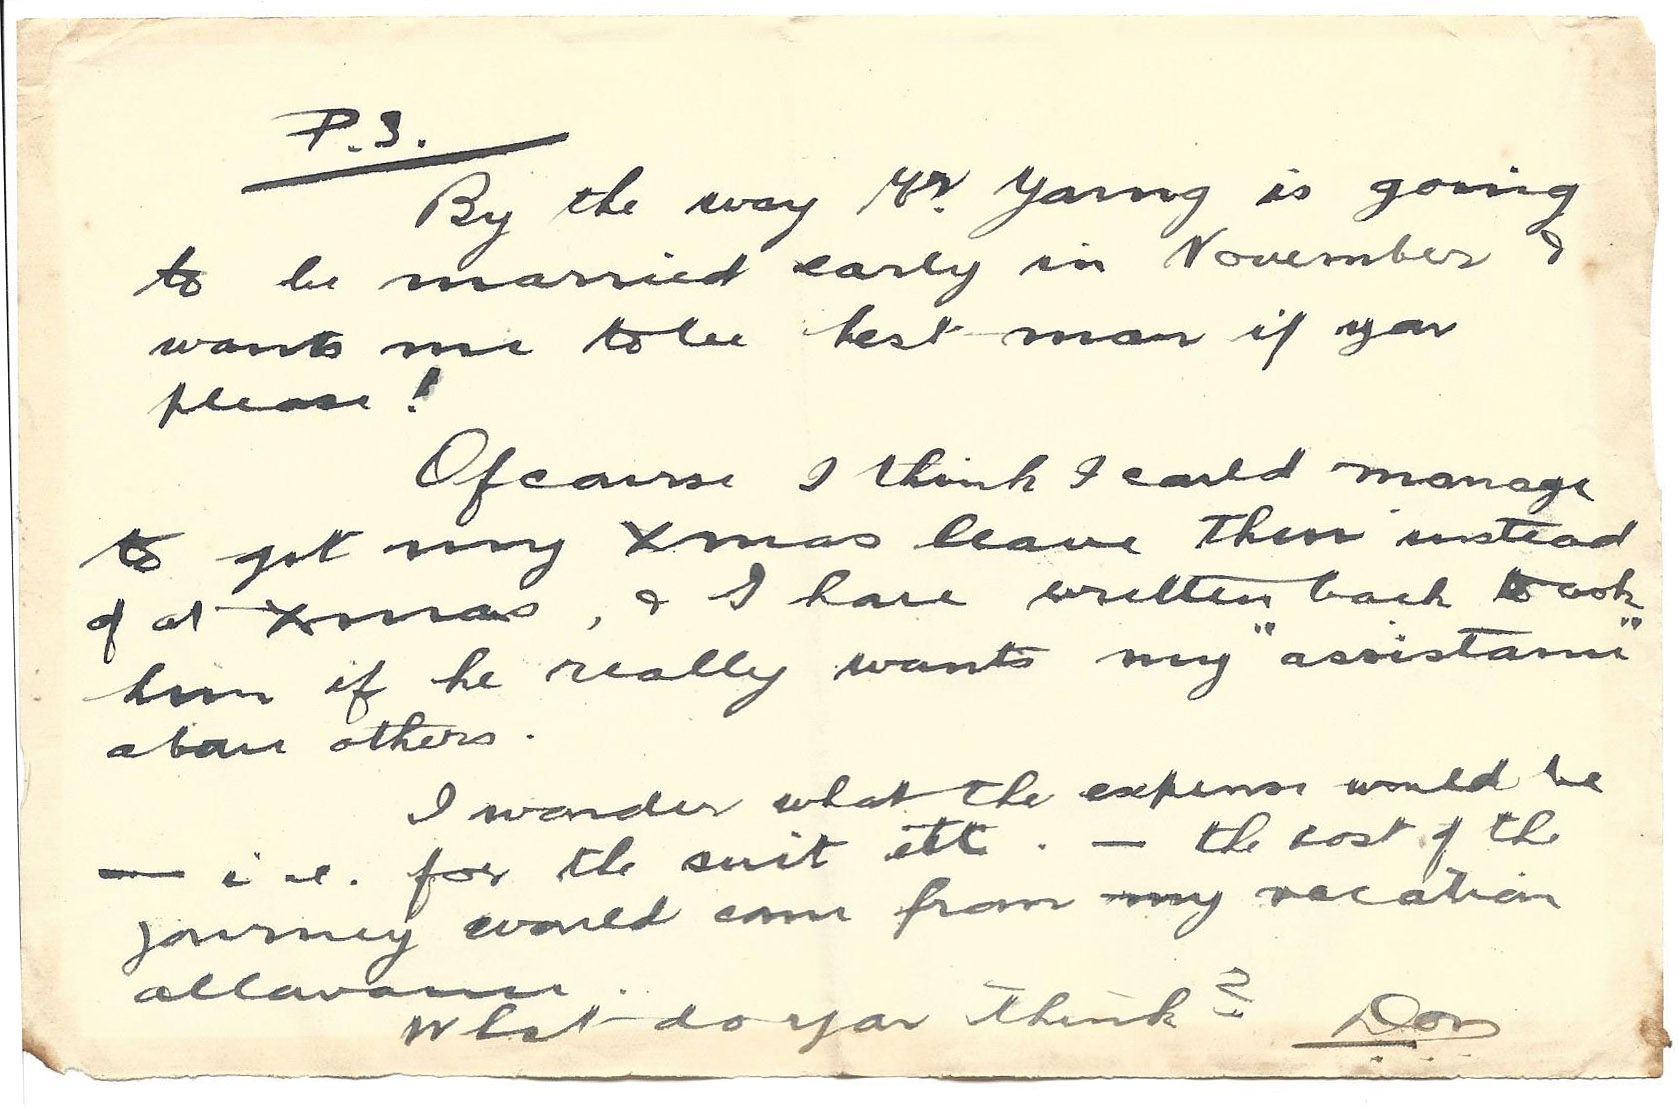 P.S.
By the way Mr. Young is going
to be married early in November &
wants me to be best man if you
please!
Ofcourse I think I could manage
to get my Xmas leave then instead
of at Xmas, & I have written back to ask
him if he really wants my "assistance"
above others.
I wonder what the expense would be
— i.e. for the suit etc. — the cost of the
journey would come from my vacation
allowance.
What do you think? Don